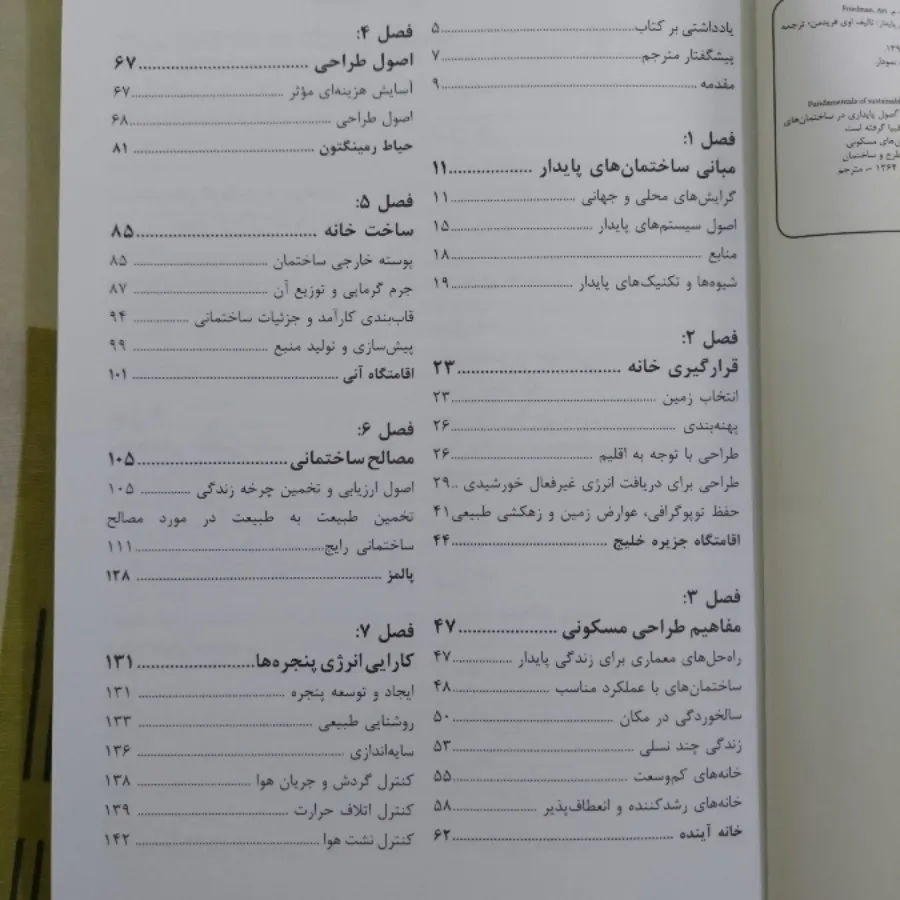 یادداشتی بر کتاب ۵
پیشگفتار مترجم ۷
مقدمه ۹
فصل ۱:
مبانی ساختمان‌های پایدار ۱۱
گرایش‌های محلی و جهانی ۱۱
اصول سیستم‌های پایدار ۱۵
منابع ۱۸
شیوه‌ها و تکنیک‌های پایدار ۱۹
فصل ۲:
قرارگیری خانه ۲۳
انتخاب زمین ۲۳
پهنه‌بندی ۲۶
طراحی با توجه به اقلیم ۲۶
طراحی برای دریافت انرژی غیرفعال خورشیدی ۲۹
حفظ توپوگرافی، عوارض زمین و زهکشی طبیعی ۴۱
اقامتگاه جزیره خلیج ۴۴
فصل ۳:
مفاهیم طراحی مسکونی ۴۷
راه‌حل‌های معماری برای زندگی پایدار ۴۷
ساختمان‌های با عملکرد مناسب ۴۸
سالخوردگی در مکان ۵۰
زندگی چند نسلی ۵۳
خانه‌های کم‌وسعت ۵۵
خانه‌های رشدکننده و انعطاف‌پذیر ۵۸
خانه آینده ۶۲
فصل ۴:
اصول طراحی ۶۷
آسایش هزینه‌ای مؤثر ۶۷
اصول طراحی ۶۸
حیاط رمینگتون ۸۱
فصل ۵:
ساخت خانه ۸۵
پوسته خارجی ساختمان ۸۵
جرم گرمایی و توزیع آن ۸۷
قاب‌بندی کارآمد و جزئیات ساختمانی ۹۴
پیش‌سازی و تولید منبع ۹۹
اقامتگاه آنی ۱۰۱
فصل ۶:
مصالح ساختمانی ۱۰۵
اصول ارزیابی و تخمین چرخه زندگی ۱۰۵
تخمین طبیعت به طبیعت در مورد مصالح
ساختمانی رایج ۱۱۱
پالمز ۱۲۸
فصل ۷:
کارایی انرژی پنجره‌ها ۱۳۱
ایجاد و توسعه پنجره ۱۳۱
روشنایی طبیعی ۱۳۳
سایه‌اندازی ۱۳۶
کنترل گردش و جریان هوا ۱۳۸
کنترل اتلاف حرارت ۱۳۹
کنترل نشت هوا ۱۴۲
Friedman, Avi
تالیف اوی فریدمن؛ ترجمه
نمودار
Fundamentals of sustainable
اصول پایداری در ساختمان‌های
فیپا گرفته است
های مسکونی
طرح و ساختمان
۱۳۶۴ -، مترجم